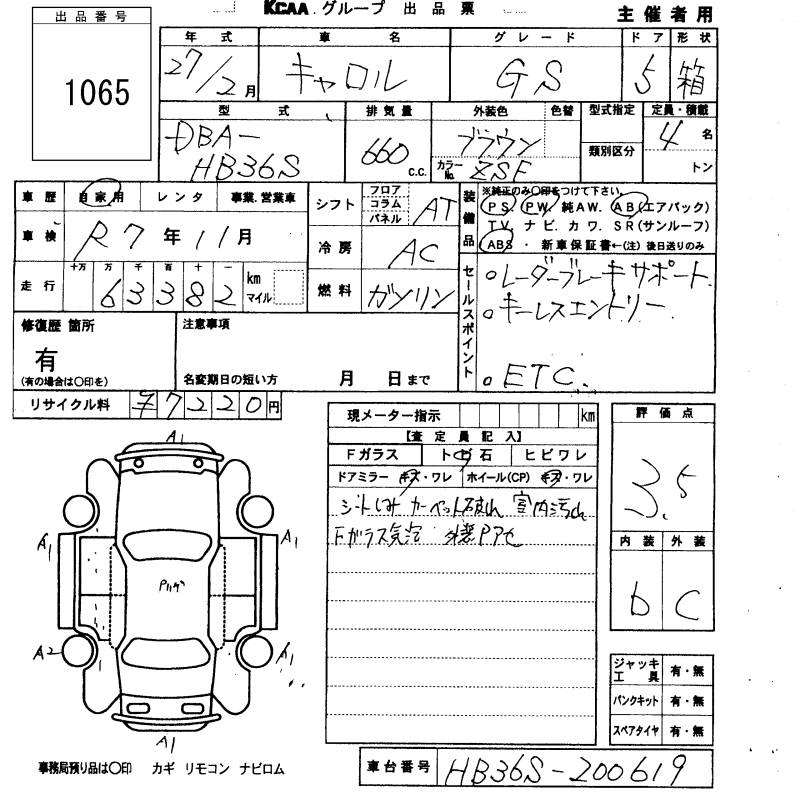 KCAA グループ 出品票
主催者用
出品番号
1065
年式 車名 グレード ドア 形状
27/2月 キャロル GS 5 箱
型式 排気量 外装色 色替 型式指定 定員・積載
DBA-HB36S 660 c.c. ブラウン カラーNo. ZSF 類別区分 4名 トン
車歴 自家用 レンタ 事業.営業車
車検 R7年11月
走行 十万 万 千 百 十 一
63382 km マイル
シフト フロア コラム パネル AT
冷房 AC
燃料 ガソリン
装備品 ※純正のみ○印をつけて下さい。
PS. PW. 純AW. AB(エアバック)
TV. ナビ. カワ. SR(サンルーフ)
ABS・新車保証書←(注)後日送りのみ
セールスポイント
○レーダーブレーキサポート
○キーレスエントリー
○ETC.
修復歴 箇所
有
(有の場合は○印を)
注意事項
名変期日の短い方 月 日まで
リサイクル料 ¥7220円
現メーター指示 km
【査定員記入】
Fガラス トビ石 ヒビワレ
ドアミラー キズ・ワレ ホイール(CP) キズ・ワレ
シートしみ カーペット破れ 室内汚れ
Fガラス気泡 外装Pアセ
評価点
3.5
内装 外装
b C
A1
A1 A1
A2 A1
A1
ジャッキ工具 有・無
パンクキット 有・無
スペアタイヤ 有・無
事務局預り品は○印 カギ リモコン ナビロム
車台番号 HB36S-200619